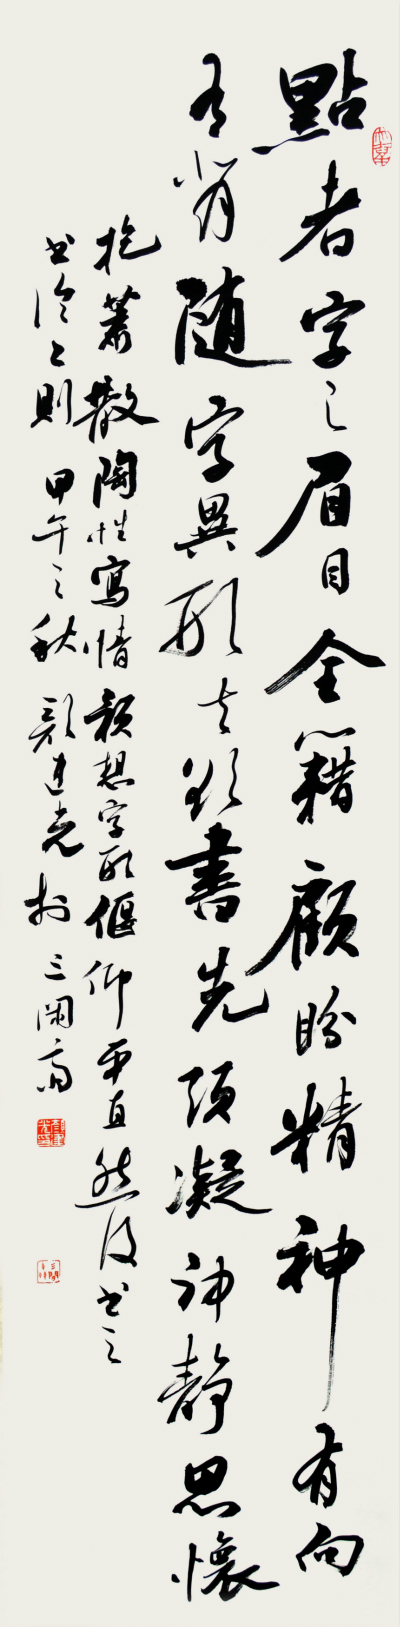 點者字之眉目全籍顧盼精神有向
有背随字異形夫欲書先須凝神静思懷
抱蕭散陶性寫情預想字形偃仰平直然後書之
書論二則 甲午之秋 於三閑齋